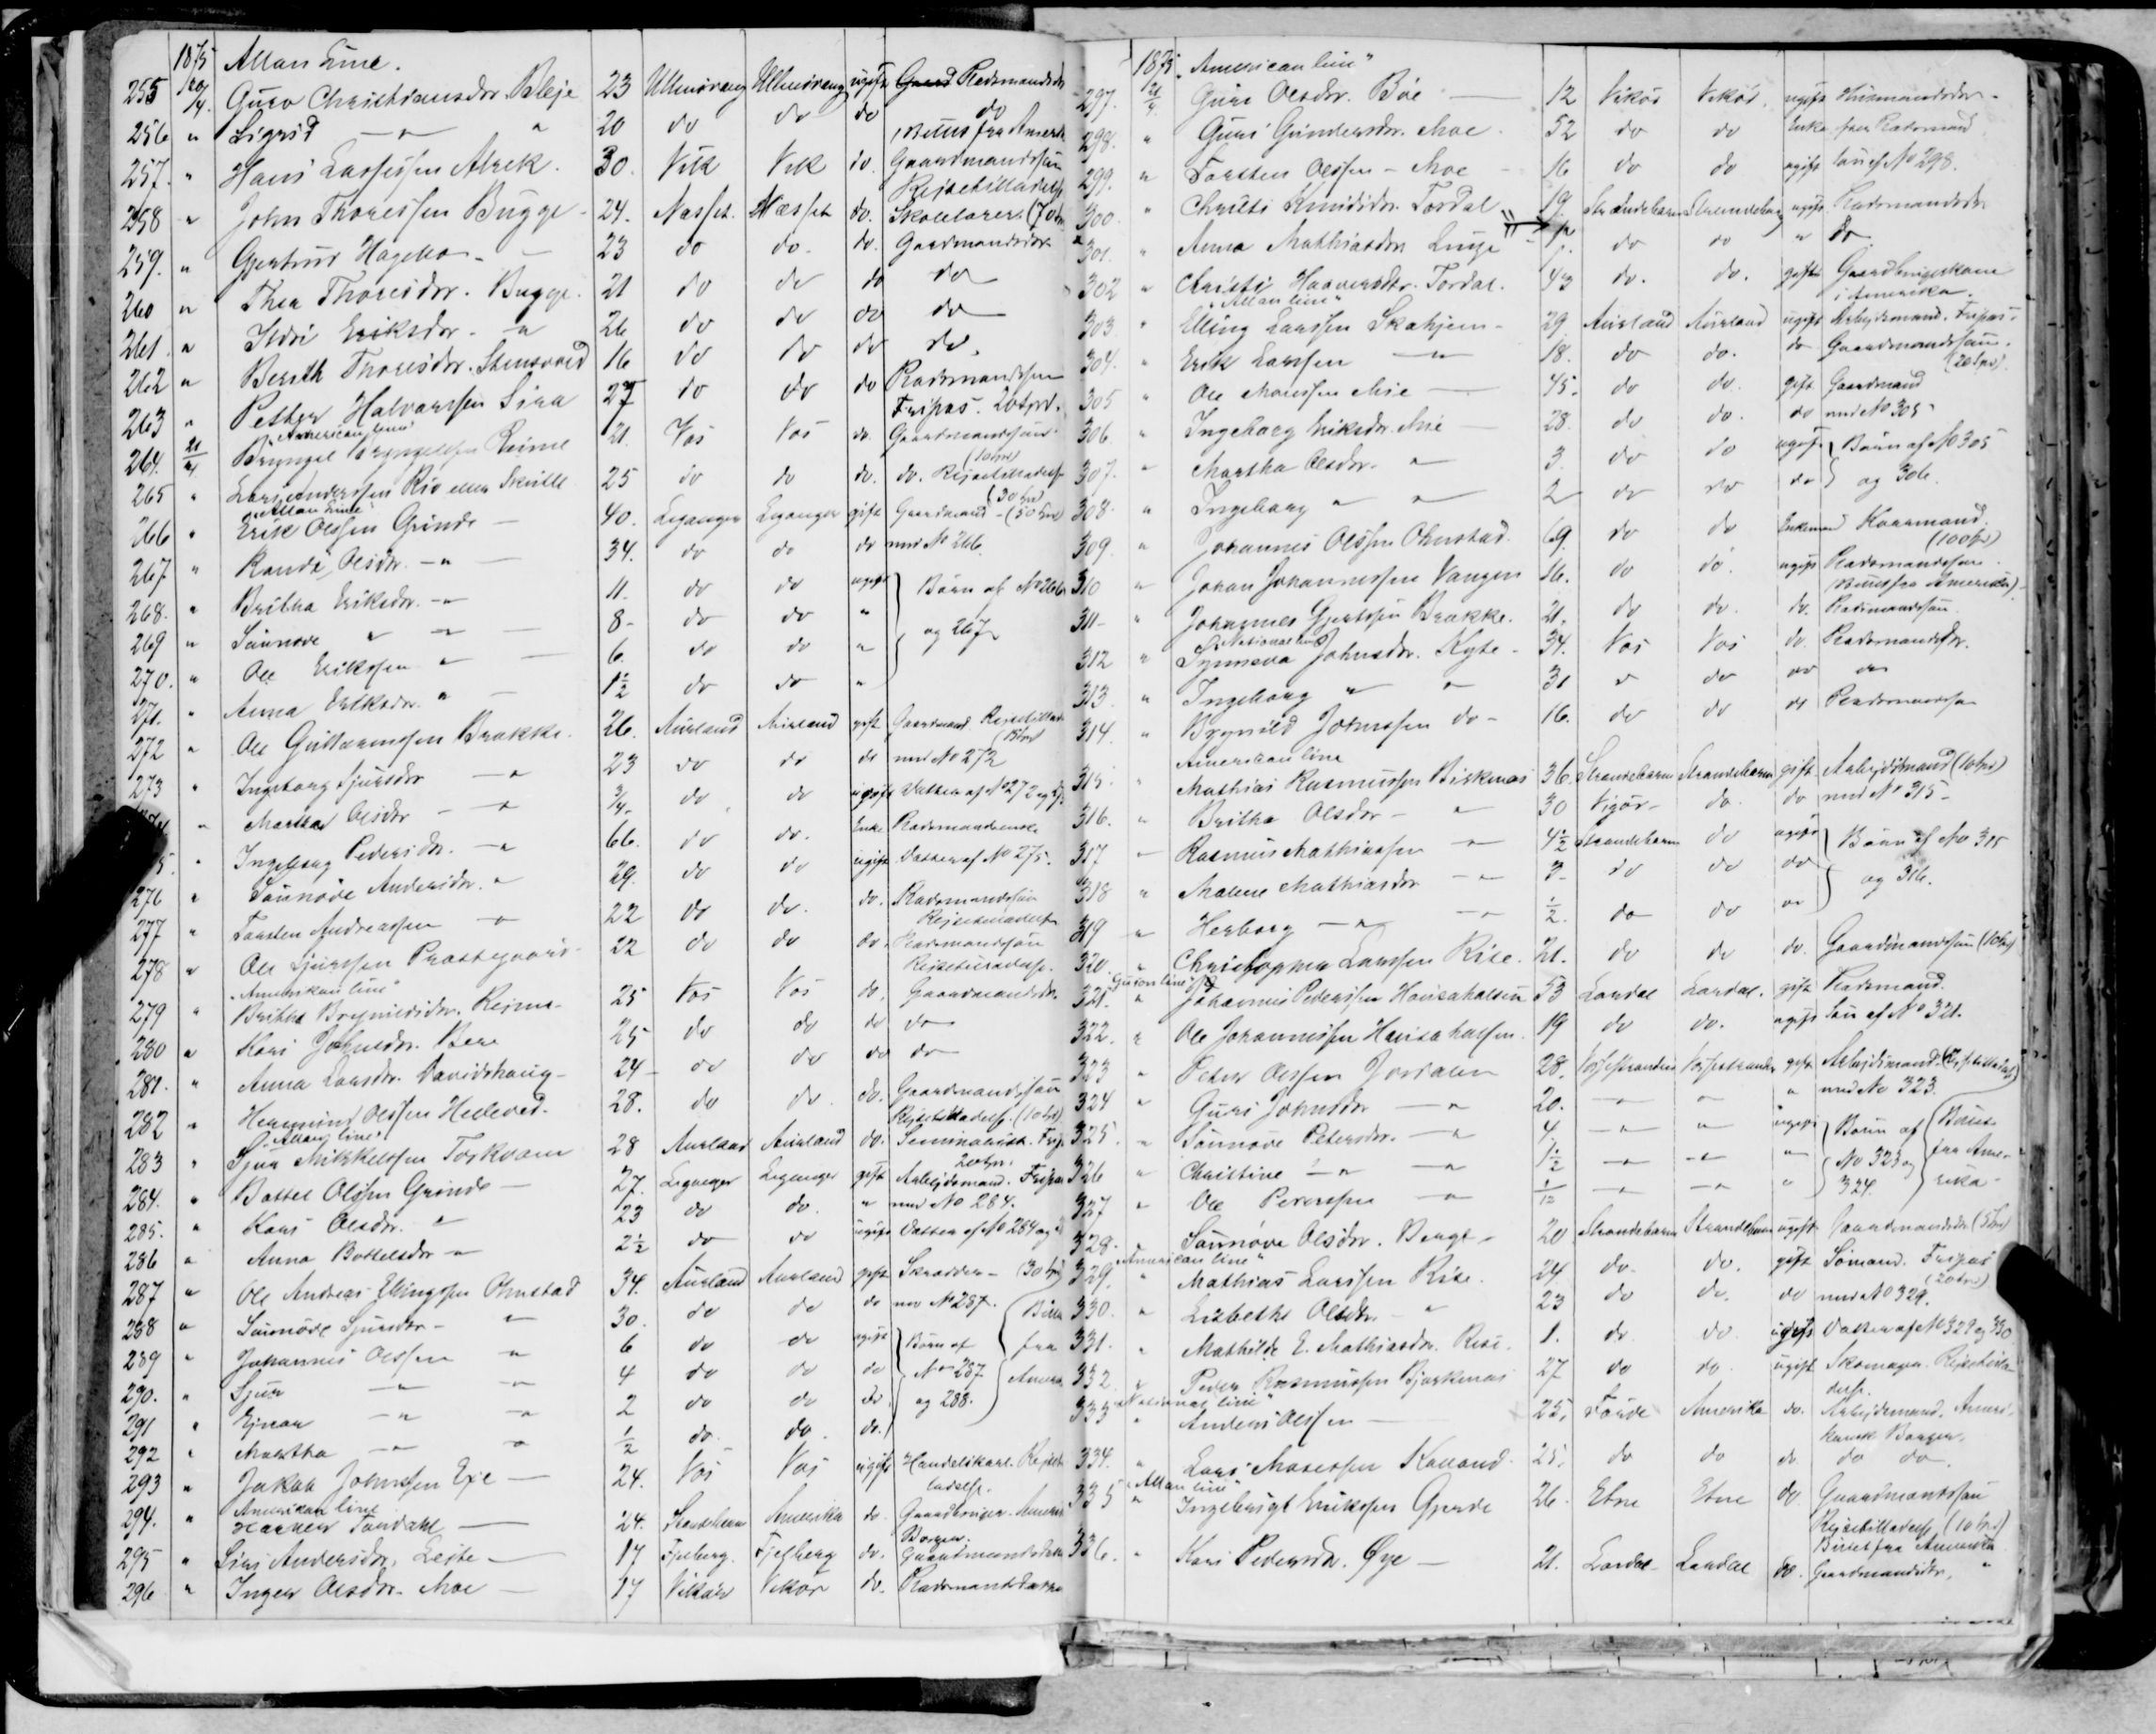 1875 Allan Line.
255 20/4. Guro Christiansdr. Bleje 23 Ullensvang Ullensvang ugift Gaard Pladsmandsdr
256 " Sigrid — " " 20 do do do do
(Billet fra Amerika
257. " Hans Lassessen Alrek. 30. Vik Vik do. Gaardmandssøn
Rejsetilladelse
258 " John Thoressen Bugge - 24. Næsset. Næsset do. Skolelærer (70
259. " Gjertrud Hageboe - 23 do do. do. Gaardmandsdr.
260 " Thea Thoresdr. Bugge. 21 do do do do
261. " Ildri Eriksdr. - " 26 do do do do
262 " Berith Thoresdr. Stensvold 16 do do do do.
263 " Petter Halvorssen Sira 27 do do do Pladsmandssøn
Fripas. 20 Spd.
"American line"
264. 21/4 Bryngel Bryngelssen Reime 21. Vos Vos do. Gaardmandssøn
(10 spd)
265 " Lars Anderssen Riv eller Skulle 25 do do do. do. Rejsetilladelse
(30 spd)
"Allan Line"
266 " Erik Olssen Grinde — 40. Leganger Leganger gift Gaardmand - (50 spd)
267 " Randi Olsdr. - " — 34. do do do med No 266.
268. " Britha Eriksdr. - " 11. do do ugift Børn af No 266
269 " Sønnøve " - " 8 - do do " og 267
270. " Ole Erikssen " — 6. do do "
271. " Anna Eriksdr. " — 1½ do do "
272 " Ole Guttormssen Brække. 26. Aurland Aurland gift Gaardmand Rejsetilladelse
273 " Ingeborg Sjursdr — " 23 do do do med No 272
" Martha Olsdr — " 3/4. do do ugift Datter af No 272 og
" Ingeborg Pedersdr. - " 66. do do. Enke Pladsmandsenke
276 " Sønnøve Andersdr. " 29. do do ugift Datter af No 275.
277 " Torsten Andreassen — " 22 do do. do. Pladsmandssøn
Rejsetilladelse
278 " Ole Sjurssen Præstegaard - 22 do do do. Pladsmandssøn
Rejsetilladelse.
"Amerikan line"
279 " Britha Brynildsdr. Rejme - 25 Vos Vos do. Gaardmandsdr.
280 " Kari Johnsdr. Bere 25 do do do do
281. " Anna Larsdr. Davidshaug - 24 - do do do do
282 " Hermund Olssen Helleved. 28. do do do. Gaardmandssøn
Rejsetilladelse. (10 spd)
"Allan line"
283 " Sjur Mikkelssen Toskvam 28 Aurland Aurland do. Seminarist. Frip
20 spd.
284. " Bottel Olssen Grinde — 27. Leganger Leganger gift Arbejdsmand. Fripas
285. " Kari Olsdr. " 23 do do. " med No 284.
286 " Anna Bottelsdr " 2½ do do ugift Datter af No 284 og
287 " Ole Andreas Ellingssen Ohnstad 34. Aurland Aurland gift Skrædder - (30 spd)
288 " Sønnøve Sjursdr - " 30. do do do med No 287.
289 " Johannes Olssen " 6 do do ugift Børn af Billet
290. " Sjur — " — " 4 do do do No 287 fra
291 " Ejnar — " — " 2 do do do og 288. Amerika
292 " Martha — " " ½ do do. do.
293 " Jakob Johnssen Eje — 24. Vos Vos ugift Handelskarl. Rejsetil-
ladelse.
Amerikan line
294. " Tondahl — 24. Amerika do. Gaardbruger. Amerik
Borger.
295 " Siri Andersdr. Lejte — 17 Fjelberg. Fjelberg do. Gaardmandsdatter
296 " Inger Olsdr. Moe — 17 Vikør Vikør do. Pladsmandsdatter
1875 "American line"
297. 21/4. Guri Olsdr. Bøe — 12 Vikør Vikør. ugift Husmandsdr. -
298. " Guri Gundersdr. Moe. 52 do do Enke efter Pladsmand
299. " Torsten Olssen - Moe - 16 do do ugift Søn af No 298.
300. " Christi Knudsdr. Tordal 19. Strandebarm Strandebarm ugift Pladsmandsdr
301. " Anna Mathiasdr. Linge 17. do do " do
302 " Christi Haaversdtr. Tordal. 43 do. do. gift Gaardbrugerkone
i Amerika.
"Allan line"
303 " Elling Larssen Skahjem - 29. Aurland Aurland ugift Arbejdsmand. Fripas -
304. " Erik Larssen — " 18. do do. do Gaardmandssøn.
(20 spd).
305 " Ole Monssen Mie — 45. do do. gift Gaardmand
306. " Ingeborg Eriksdr. Mie — 28. do do. do med No 305 -
307. " Martha Olsdr. " 3. do do ugift Børn af No 305
308. " Ingeborg " " 2 do do do og 306.
309. " Johannes Olssen Ohnstad. 69. do do Enkemand Kaarmand.
(100 spd)
310 " Johan Johannessen Vangen 16. do do ugift Pladsmandssøn.
(Billet fra Amerika)
311 - " Johannes Gjertssen Brække. 21. do do. do. Pladsmandssøn
"National line"
312 " Synneva Johnsdr. Kyte - 34. Vos Vos do. Pladsmandsdr.
313. " Ingeborg " " 31 do do do do
314. " Brynild Johnssen do - 16. do do do Pladsmandssøn
American line
315. " Mathias Rasmussen Birkenæs 36. Strandebarm Strandebarm gift. Arbejdsmand (10 spd)
316. " Britha Olsdr - " 30 Vigør - do. do med No 315 -
317 — Rasmus Mathiassen — 4½ Strandebarm do ugift Børn af No 315
318 " Malene Mathiasdr — " 3 - do do do og 316.
319 " Herborg — " — " ½. do do do
320 " Christopher Larssen Rise. 21. do do do. Gaardmandssøn (10 spd)
"Guion line"
321. " Johannes Pederssen Hausahalsen 53 Lærdal Lærdal. gift Pladsmand.
322. " Ole Johannessen Hausahalsen. 19 do do. ugift Søn af No 321.
323 " Peder Olssen Jordalen 28. Vossestranden Vossestranden gift Arbejdsmand. (Rejsetilladelse)
324 " Guri Johnsdr — " 20. — " — " " med No 323.
325. " Sønnøve Petersdr. — " 4. — " " ugift Børn af Billet
326 " Christine — " — " 1½ — " — " " No 323 og fra Ame-
327 " Ole Peterssen — " 1/12 — " — " " 324. rika -
328. " Sønnøve Olsdr. Berge - 20 Strandebarm Strandebarm ugift Gaardmandsdr (5 spd)
"American line"
329. " Mathias Larssen Rise. 24. do. do. gift Sømand. Fripas
(20 spd)
330. " Lisbeth Olsdr. " 23 do do. do med No 329.
331. " Mathilde E. Mathiasdr. Rise. 1. do do. ugift Datter af No 329 og 330
332. " Peder Rasmussen Bjørkenæs 27 do do. ugift Skomager. Rejsetilla-
delse.
"National line"
333 " Anders Olssen — 25. Førde Amerika do. Arbejdsmand. Ameri-
kansk Borger.
334. " Lars Mosessen Kolland. 25. do do do do do.
"Allan line"
335 " Ingebrigt Erikssen Gjerde 26. Etne Etne do. Gaardmandssøn
Rejsetilladelse (10 spd)
Billet fra Amerika
336. " Kari Pedersdr. Øye — 21. Lærdal Lærdal do. Gaardmandsdr, "